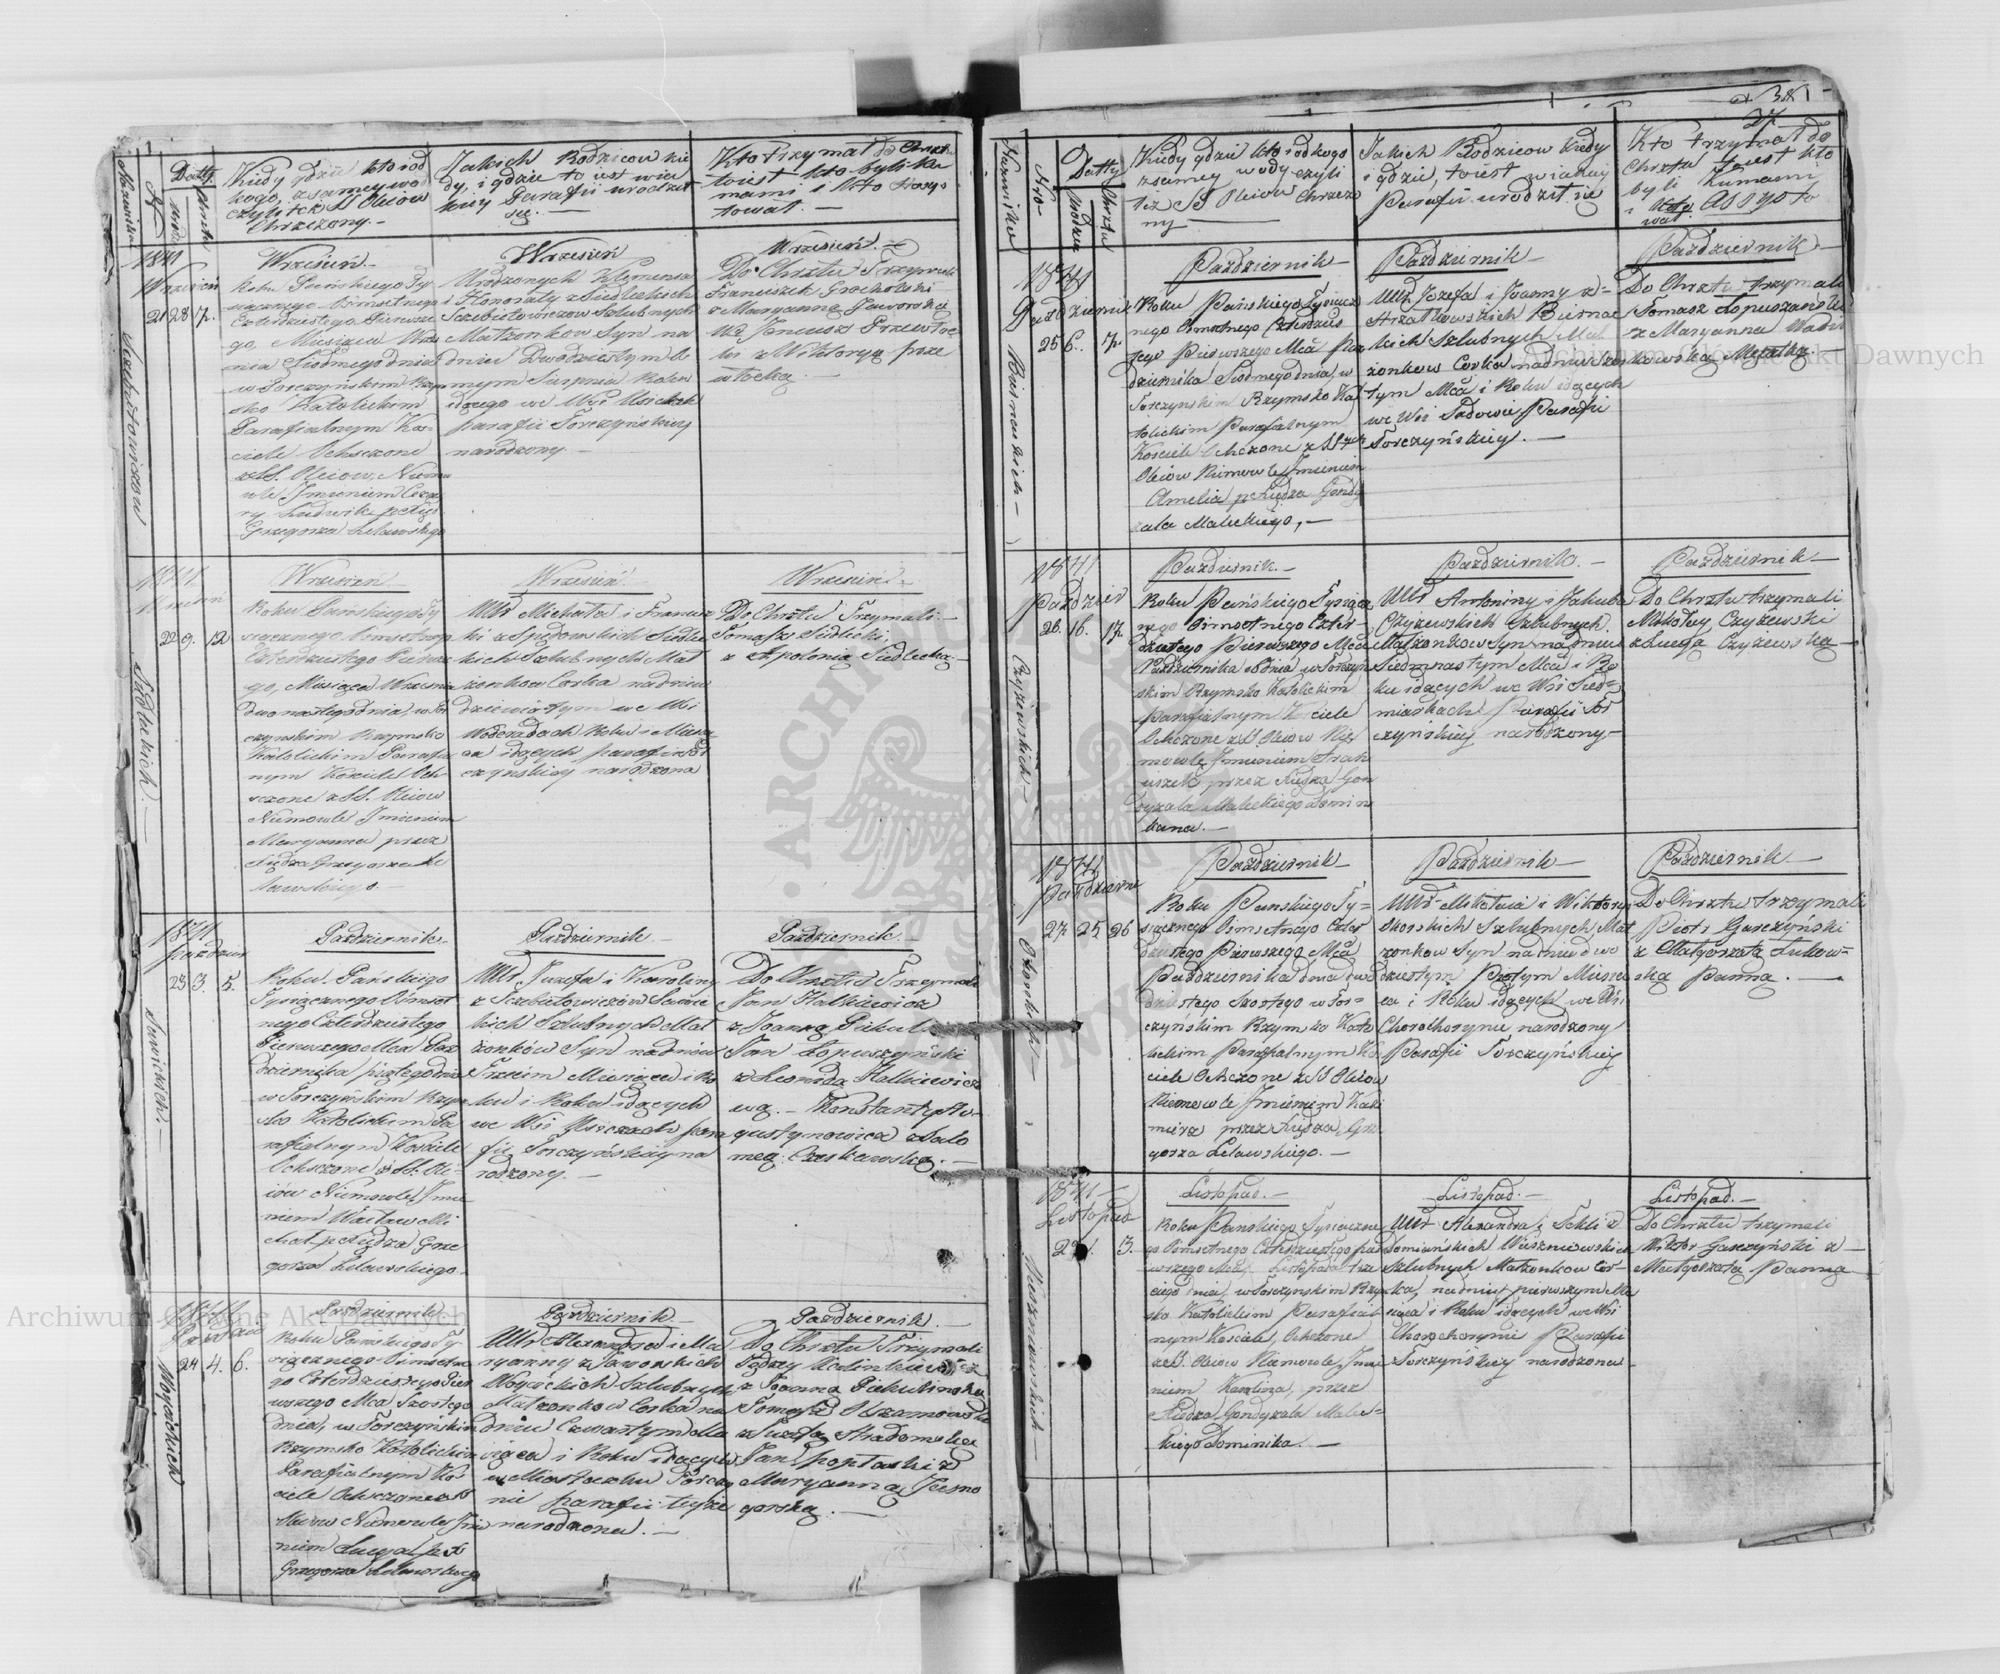 Nazwisko
№
Datty
urodz
chrztu
Kiedy gdzie kto i od
kogo, z samey wo
czyli tez SS Oleiow
Chrzczony.—
Jakich Rodzicow kie
dy, i gdzie to iest w iakiey
Parafii urodził
się.—
Kto trzymał do Chrztu
to iest kto byli ku
mami i kto Assys
tował.—
1841
Wrzesień
21 28 7.
Szebietowiczow
Wrzesień
Roku Pańskiego Ty
siącznego Osmsetnego
Czterdziestego Pierwsze
go, Miesiąca Wrze
nia Siódmego dnia
w Torczyńskim Rzym
sko Katolickim
Parafialnym Koś
ciele Ochrzczone
z SS. Oleiow, Niemo
wle Imieniem Ceza
ry Ludwik
Grzegorza Lelawskiego
Wrzesień
Urodzonych Klemensa
i Honoraty z Siedleckich
Szebietowiczow Szlubnych
Małzonkow Syn na
dniu Dwudziestym ós
mym Sierpnia Roku
idącego we Wsi Usiczkach
parafii Torczyńskiey
narodzony—
Wrzesień.—
Do Chrztu Trzymali
Franciszek Grocholski
z Maryanną Jaworską
Ur Janeusz Przewłoc
ki z Wiktoryą Prze
włocką.—
1841
Wrzesień
22 9. 12
Siedleckich.—
Wrzesień
Roku Pańskiego Ty
siącznego Osmsetnego
Czterdziestego Pierwsze
go, Miesiąca Wrzesnia
dwonastego dnia, w Tor
czynskim Rzymsko
Katolickim Parafia
lnym Kościele Och
rzczone z SS. Oleiow
Niemowle Imieniem
Maryanna przez
Xiędza Grzegorza Le
lawskiego.—
Wrzesień
UUr Michała i Francisz
ki z Spidowskich Siedlec
kich Szlubnych Mał
zonkow Corka na dniu
dziewiątym we Wsi
Woderadach Roku i Miesią
ca idących parafii Tor
czynskiey narodzona
Wrzesień
Do Chrztu Trzymali.—
Tomasz Siedlicki
z Apolonią Siedlecką.—
1841
Pazdzier
23 3. 5.
Sawickich.—
Pazdziernik
Roku Pańskiego
Tysiącznego Osmset
nego Czterdziestego
Pierwszego Mca Paz
dziernika piątego dnia
w Torczyńskim Rzym
sko Katolickim Pa
rafialnym Kościele
Ochrzczone z SS. Ole
iów Niemowle Imie
niem Wacław Mi
chał p. Xiędza Grze
gorza Lelawskiego.
Pazdziernik
UUr Juzefa i Karoliny
z Szebietowiczow Sawic
kich Szlubnych Mał
zonków Syn na dniu
Trzecim Miesiąca i Ro
ku i Roku idących
we Wsi Usiczach para
fii Torczyńskiey na
rodzony.—
Pazdziernik.
Do Chrztu Trzymali
Jan Kalkiewicz
z Joanną Pikul
Jan Łopuszyński
z Leonidą Kalkiewicz
ową.— Konstanty Au
gustynowicz z Salo
meą Czeskawską.—
24 4. 6.
Woycickich
Pazdziernik
Roku Pańskiego Ty
siącznego Osmsetne
go Czterdziestego Pier
wszego Mca Szóstego
dnia, w Torczyńskim
Rzymsko Katolickim
Parafialnym Koś
ciele Ochrzczone z SS
Oleiow Niemowle Imie
niem Łucya p. X
Grzegorza Lelawskiego
Pazdziernik
UUr Alexandra i Ma
ryanny z Jaworskich
Woycickich Szlubnych
Małzonkow Corka na
dniu Czwartym Mie
siąca i Roku idących
w Miasteczku Torczy
nie parafii teyże
narodzona.—
Pazdziernik.
Do Chrztu Trzymali
Jgdrzy Kalinkiewicz
z Joanną Piekulinską
Tomasz Olszamowski
z Juzefą Stradomską
Jan Popławski z
Maryanną Jezno
gorską.—
27
Nazwisko
Nro
Datty
Urodze
Chrztu
Kiedy gdzie kto i od kogo
z samey wody, czyli
tez SS Oleiow Chrzczo
ny—
Jakich Rodzicow kiedy
i gdzie, to iest w iakiey
Parafii urodził się
Kto trzymał do
Chrztu to iest kto
byli Kumami
i kto Assysto
wał.
1841
Pazdziernik
25 6. 7.
Biernackich—
Pazdziernik—
Roku Pańskiego Tysiącz
nego Osmsetnego Czterdzies
tego Pierwszego Mca Paz
dziernika Siodmego dnia, w
Torczynskim Rzymsko Ka
tolickim Parafialnym
Kościele Ochrzczone z SSych
Oleiów Niemowle Imieniem
Amelia p Xiędza Gondy
zala Maleckiego,—
Pazdziernik—
UUr Jozefa i Joanny z
Arzałkowskich Biernac
kich Szlubnych Mał
zonkow Corka na dniu szos
tym Mca i Roku idących
we Wsi Sadowie Parafii
Torczyńskiey.—
Pazdziernik—
Do Chrztu trzymali
Tomasz Łopuszański
z Maryanną Wadi
kowską Męzatką
1841
Pazdzier
26. 16. 17.
Czyżewskich.—
Pazdziernik.—
Roku Pańskiego Tysiącz
nego Osmsetnego Czter
dziestego Pierwszego Mca
Pazdziernika dnia w Torczyn
skim Rzymsko Katolickim
Parafialnym Kosciele
Ochrzczone z SS Oleiow Nie
mowlę Imieniem Fran
ciszek przez Xiędza Gon
dyzala Maleckiego Domin
kana.—
Pazdziernik.—
UUr Antoniny i Jakuba
Czyżewskich Szlubnych
Małzonkow Syn na dniu
Siedmnastym Mca i Ro
ku idących we Wsi Sied
miarkach Parafii Tor
czyńskiey narodzony—
Pazdziernik—
Do Chrztu trzymali
Mikołay Czyżewski
z Łucyą Czyżewską—
1841
Pazdziernik
27 25 26
Okorskich—
Pazdziernik—
Roku Pańskiego Ty=
siącznego Osmsetnego Czter
dziestego Pierwszego Mca
Pazdziernika dnia dwu
dziestego Szostego w Tor=
czyńskim Rzymsko Kato
lickim Parafialnym Koś
ciele Ochrzczone z SS Oleiow
Niemowle Imieniem Kazi
mierz przez Xiędza Grze
gorza Lelawskiego.—
Pazdziernik—
UUr Mikołaia i Wiktoryi
Okorskich Szlubnych Mał
zonkow Syn na dniu dwu
dziestym Piątym Miesią
ca i Roku idących we Wsi
Chorochorynie narodzony
Parafii Torczyńskiey
Pazdziernik—
Do Chrztu trzymali
Piotr Garczyński
z Małgorzatą Łukow=
ską Panną.—
1841
Listopad
28 1. 3.
Wiszniowskich
Listopad.—
Roku Pańskiego Tysiączne
go Osmsetnego Czterdziestego pier
wszego Mca Listopada trze
ciego dnia, w Torczyńskim Rzym
sko Katolickim Parafial
nym Kosciele, Ochrzczone
z SS. Oleiow Niemowle Imie
niem Karolina, przez
Xiędza Gondyzala Malec=
kiego Dominika.—
Listopad.—
UUr Alexandra i Tekli z
Domańskich Wiszniowskich
Szlubnych Małzonkow Cor=
ka, na dniu pierwszym Mie
siąca i Roku idących we Wsi
Chorochorynie Parafii
Torczyńskiey narodzona
Listopad.—
Do Chrztu trzymali
Wiktor Garczyński z—
Małgorzatą Panną
Archiwum Główne Akt Dawnych
Archiwum Główne Akt Dawnych